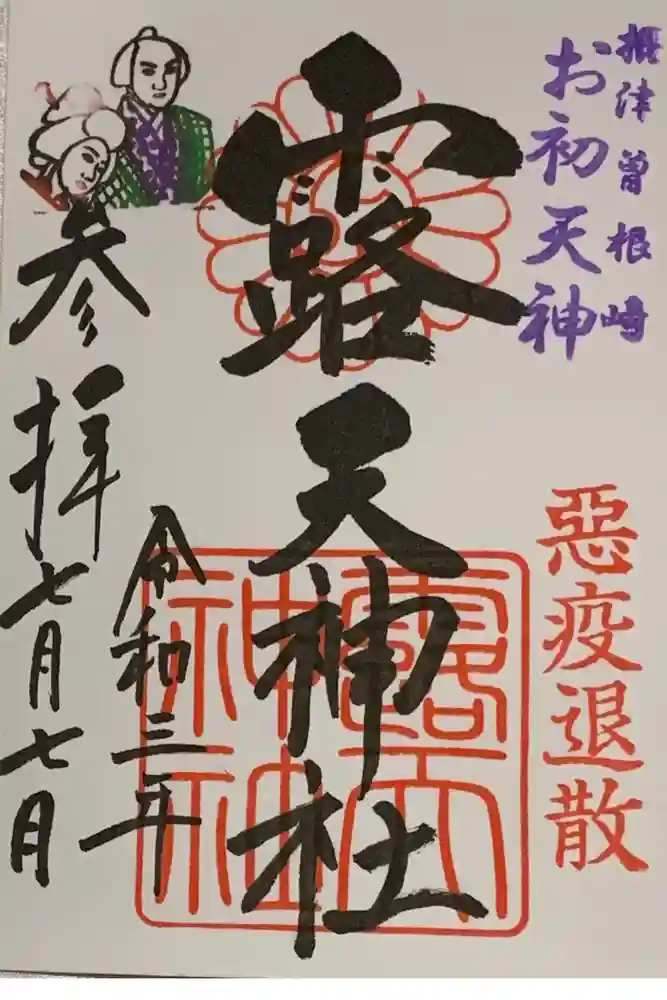 摂津曽根崎
お初天神
悪疫退散
露天神社
露天
神社
令和三年
七月七月
参拝